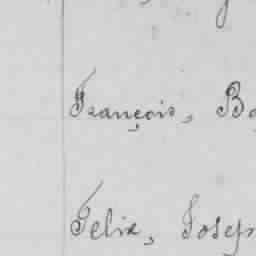 François, Ba
Felix, Joseph